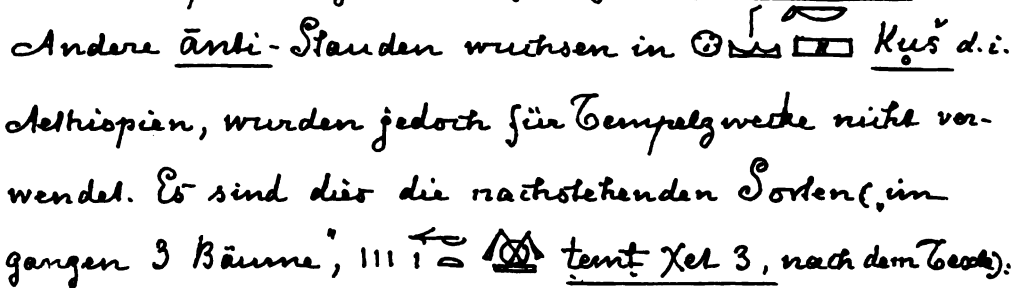 Andere ānti-Stauden wuchsen in Ḳuš d.i.
Aethiopien, wurden jedoch für Tempelzwecke nicht ver-
wendet. Es sind dies die nachstehenden Sorten („im
ganzen 3 Bäume“, temt χet 3, nach dem Texte):